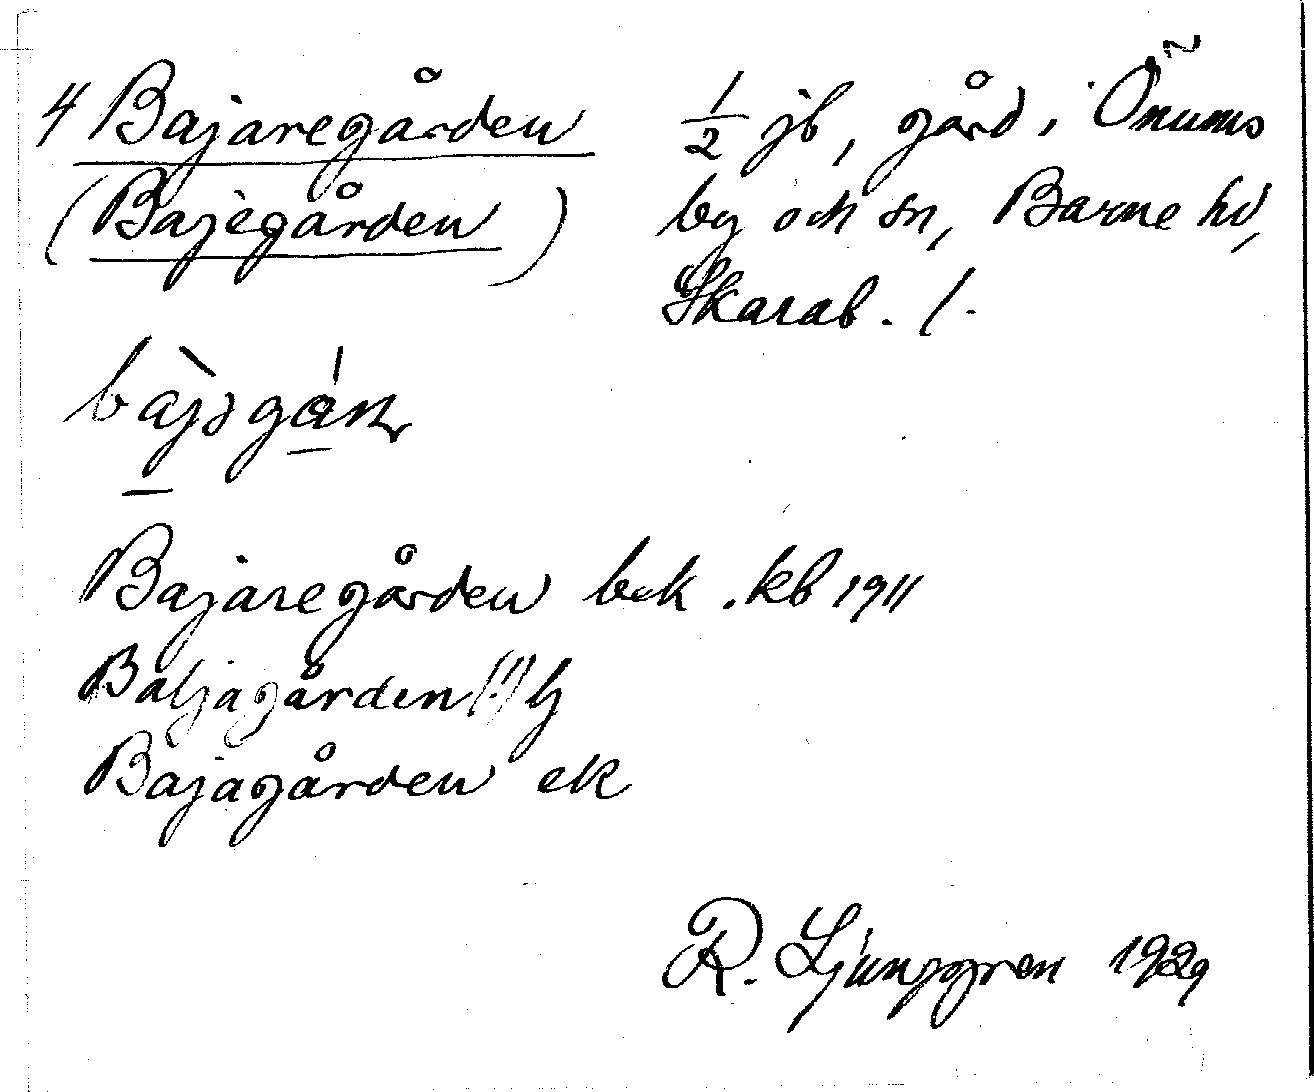 4 Bajaregården
(Bajegården)
1/2 jb, gård i Önums
by och sn, Barne hd,
Skarab. l.
bàjəgán
Bajaregården bek. kb 1911
Baljagården (!) hj
Bajagården ek
R. Ljunggren 1929